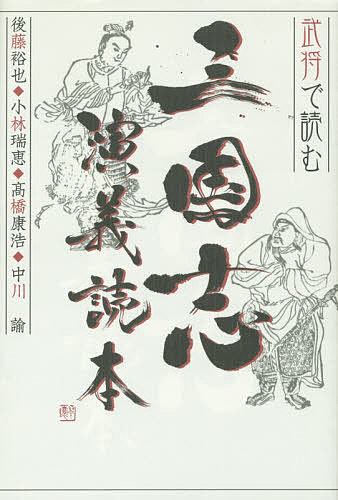 武将で読む
三国志
演義読本
後藤裕也◆小林瑞恵◆高橋康浩◆中川 諭